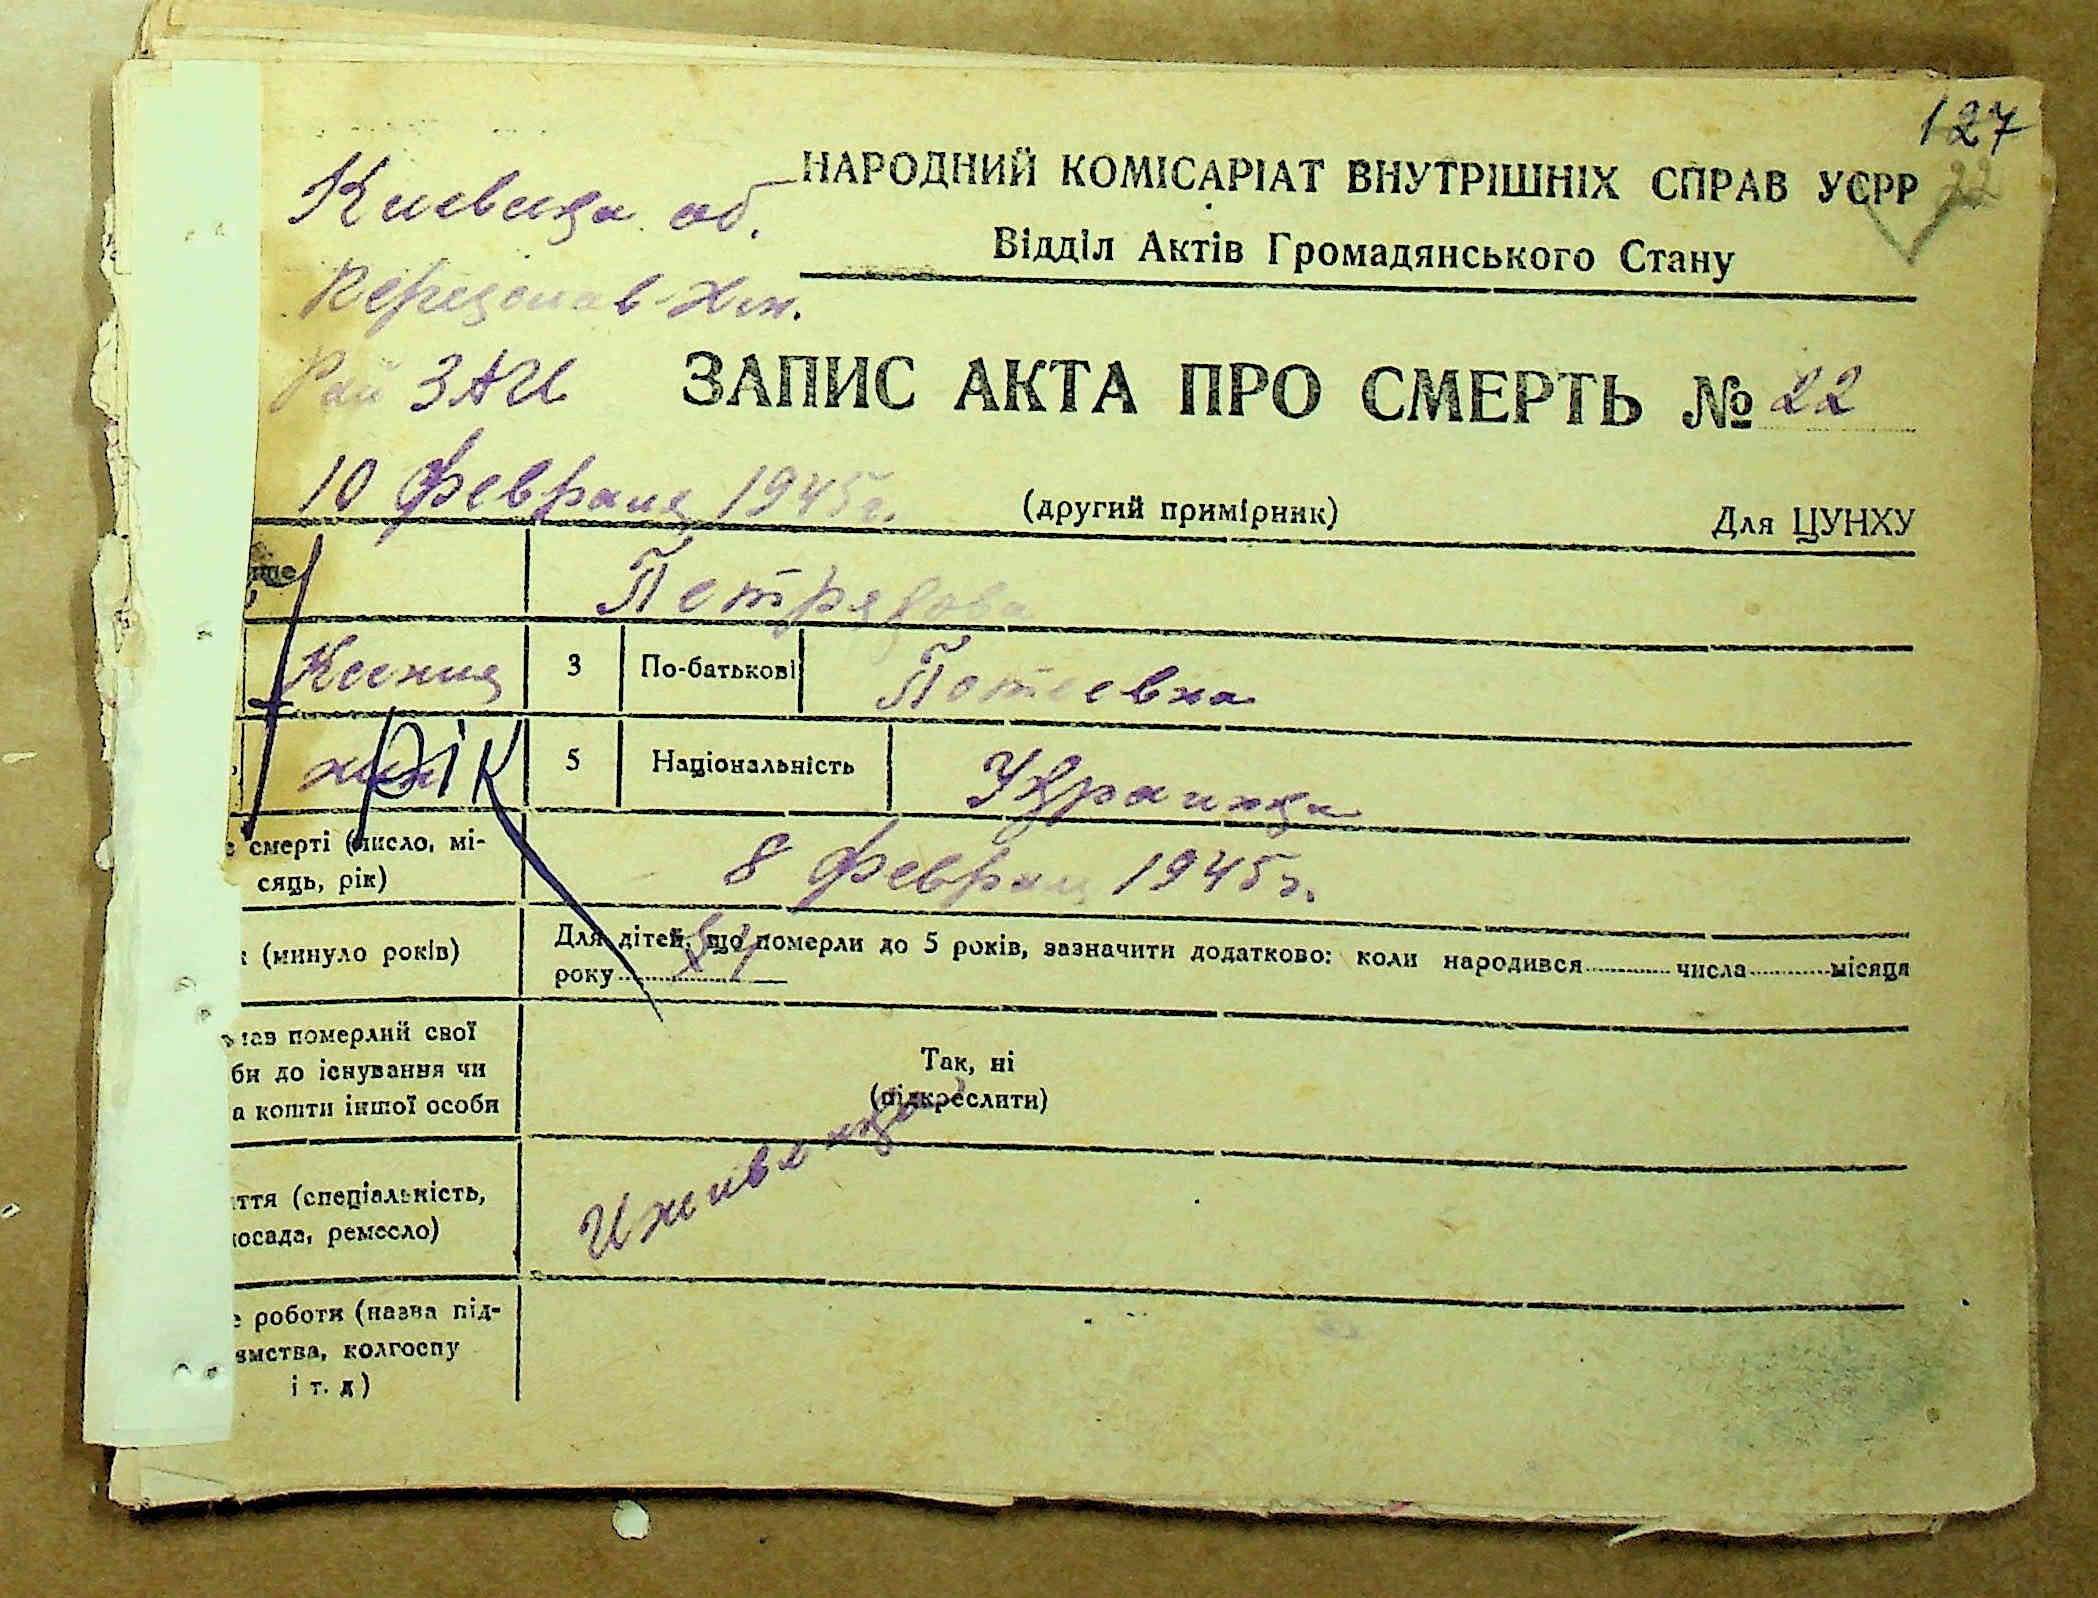 127
НАРОДНИЙ КОМІСАРІАТ ВНУТРІШНІХ СПРАВ УСРР 22
Відділ Актів Громадянського Стану
Киевска об.
Переяслав-Хм.
Рай ЗАГС
ЗАПИС АКТА ПРО СМЕРТЬ № 22
10 февраля 1945г.
(другий примірник)
Для ЦУНХУ
ище
Ксения
3
По-батькові
Потеевна
жін
рік
5
Національність
Украинка
смерті (число, мі-
сяць, рік)
8 февраля 1945г.
(минуло років)
Для дітей, що померли до 5 років, зазначити додатково: коли народився числа місяця
року
мав померлий свої
би до існування чи
а кошти іншої особи
Так, ні
(підкреслити)
ття (спеціальність,
осада, ремесло)
Иждивенка
е роботи (назва під-
ємства, колгоспу
і т. д)